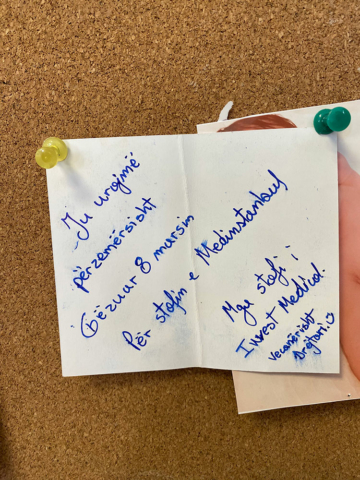 Ju urojmë
përzemërsisht
Gëzuar 8 marsin
Për stafin e Medinstanbul
Nga stafi i
Invest Medical.
Veçanërisht